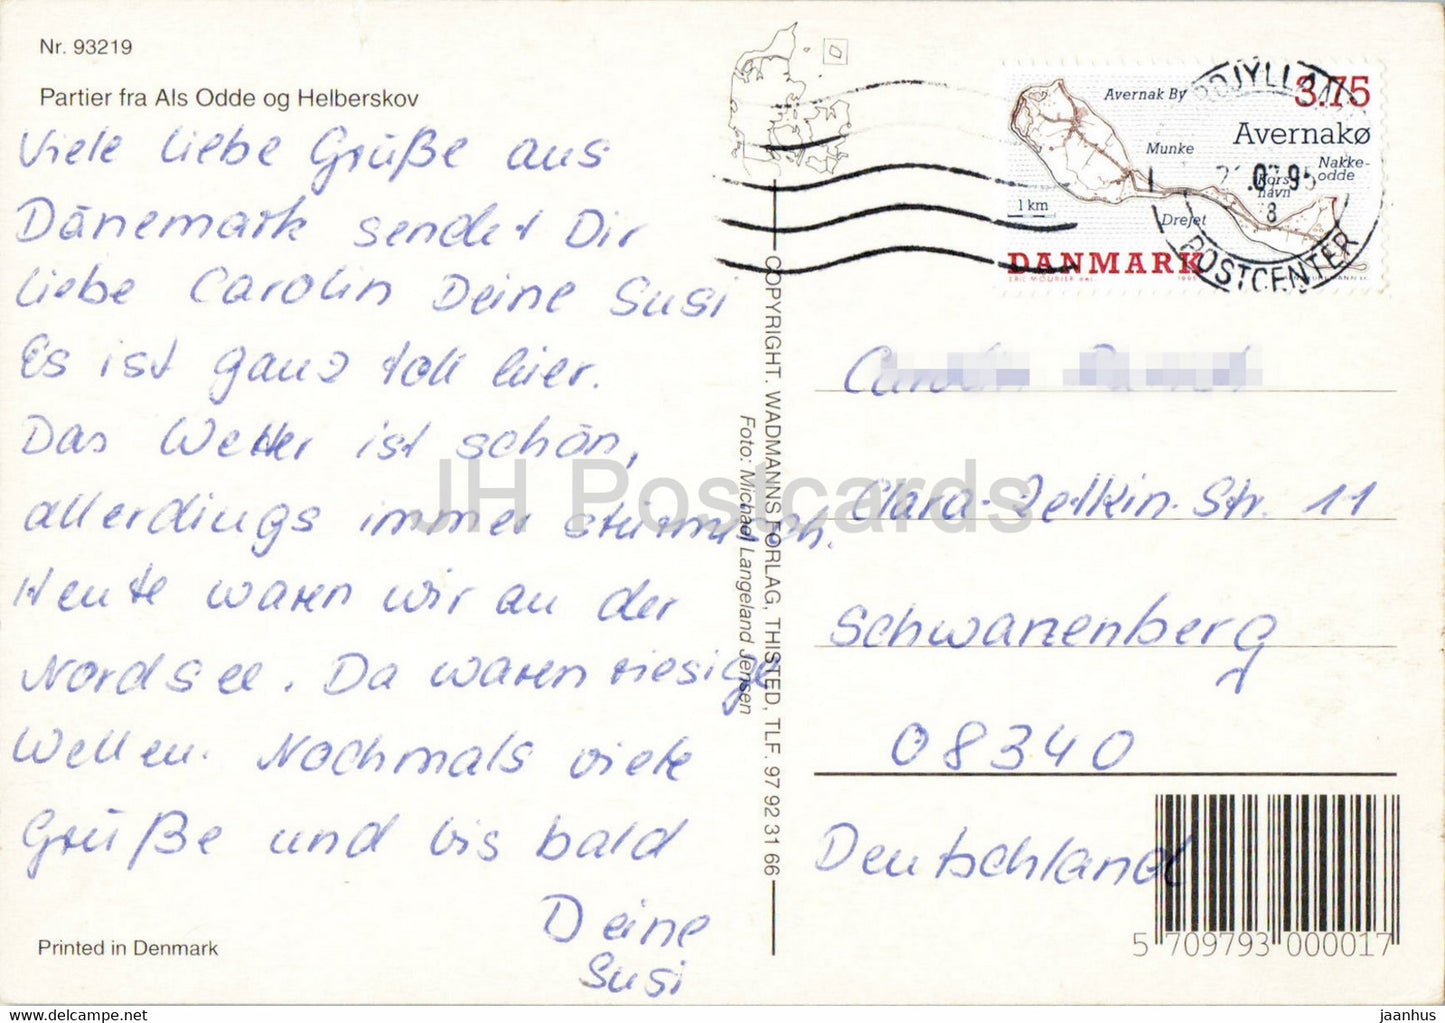 Nr. 93219
Partier fra Als Odde og Helberskov
Viele liebe Grüße aus
Dänemark sendet Dir
liebe Carolin Deine Susi
Es ist ganz toll hier.
Das Wetter ist schön,
allerdings immer stürmisch.
Heute waren wir an der
Nordsee. Da waren riesige
Wellen. Nochmals viele
Grüße und bis bald
Deine
Susi
Printed in Denmark
COPYRIGHT. WADMANNS FORLAG, THISTED, TLF. 97 92 31 66
Foto: Michael Langeland Jensen
3.75
Avernak By
Avernakø
Munke
Nakke-
odde
Kors-
havn
Drejet
1 km
DANMARK
POSTCENTER
Clara-Zetkin-Str. 11
Schwarzenberg
08340
Deutschland
5 709793 000017
JH Postcards
jaanhus